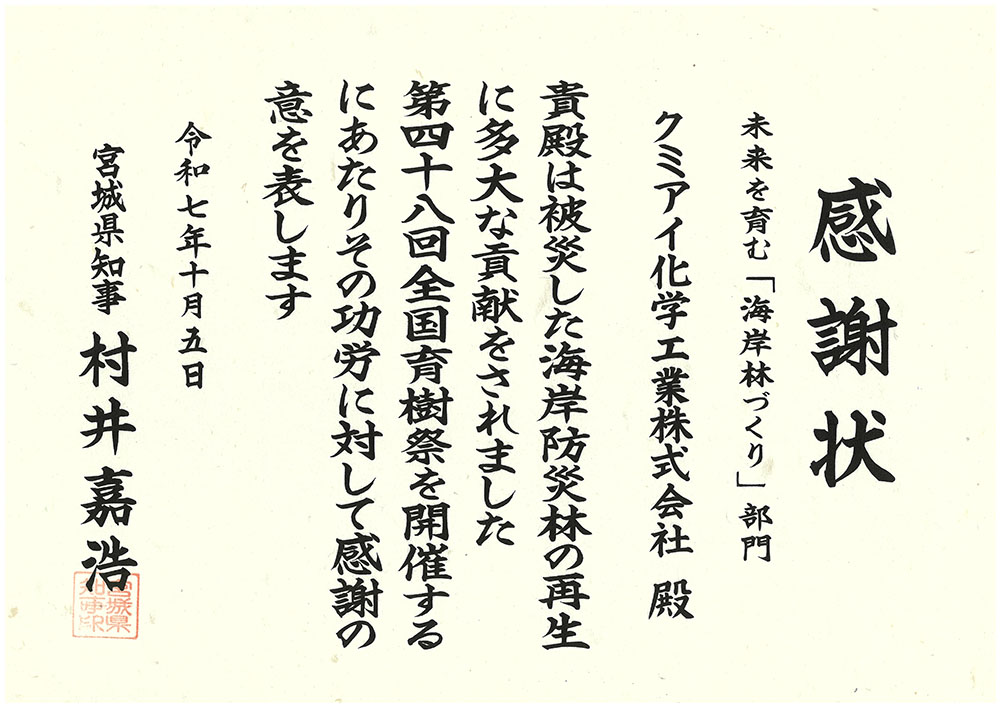 感謝状
未来を育む「海岸林づくり」部門
クミアイ化学工業株式会社 殿
貴殿は被災した海岸防災林の再生
に多大な貢献をされました
第四十八回全国育樹祭を開催する
にあたりその功労に対して感謝の
意を表します
令和七年十月五日
宮城県知事 村井嘉浩
宮城県
知事印